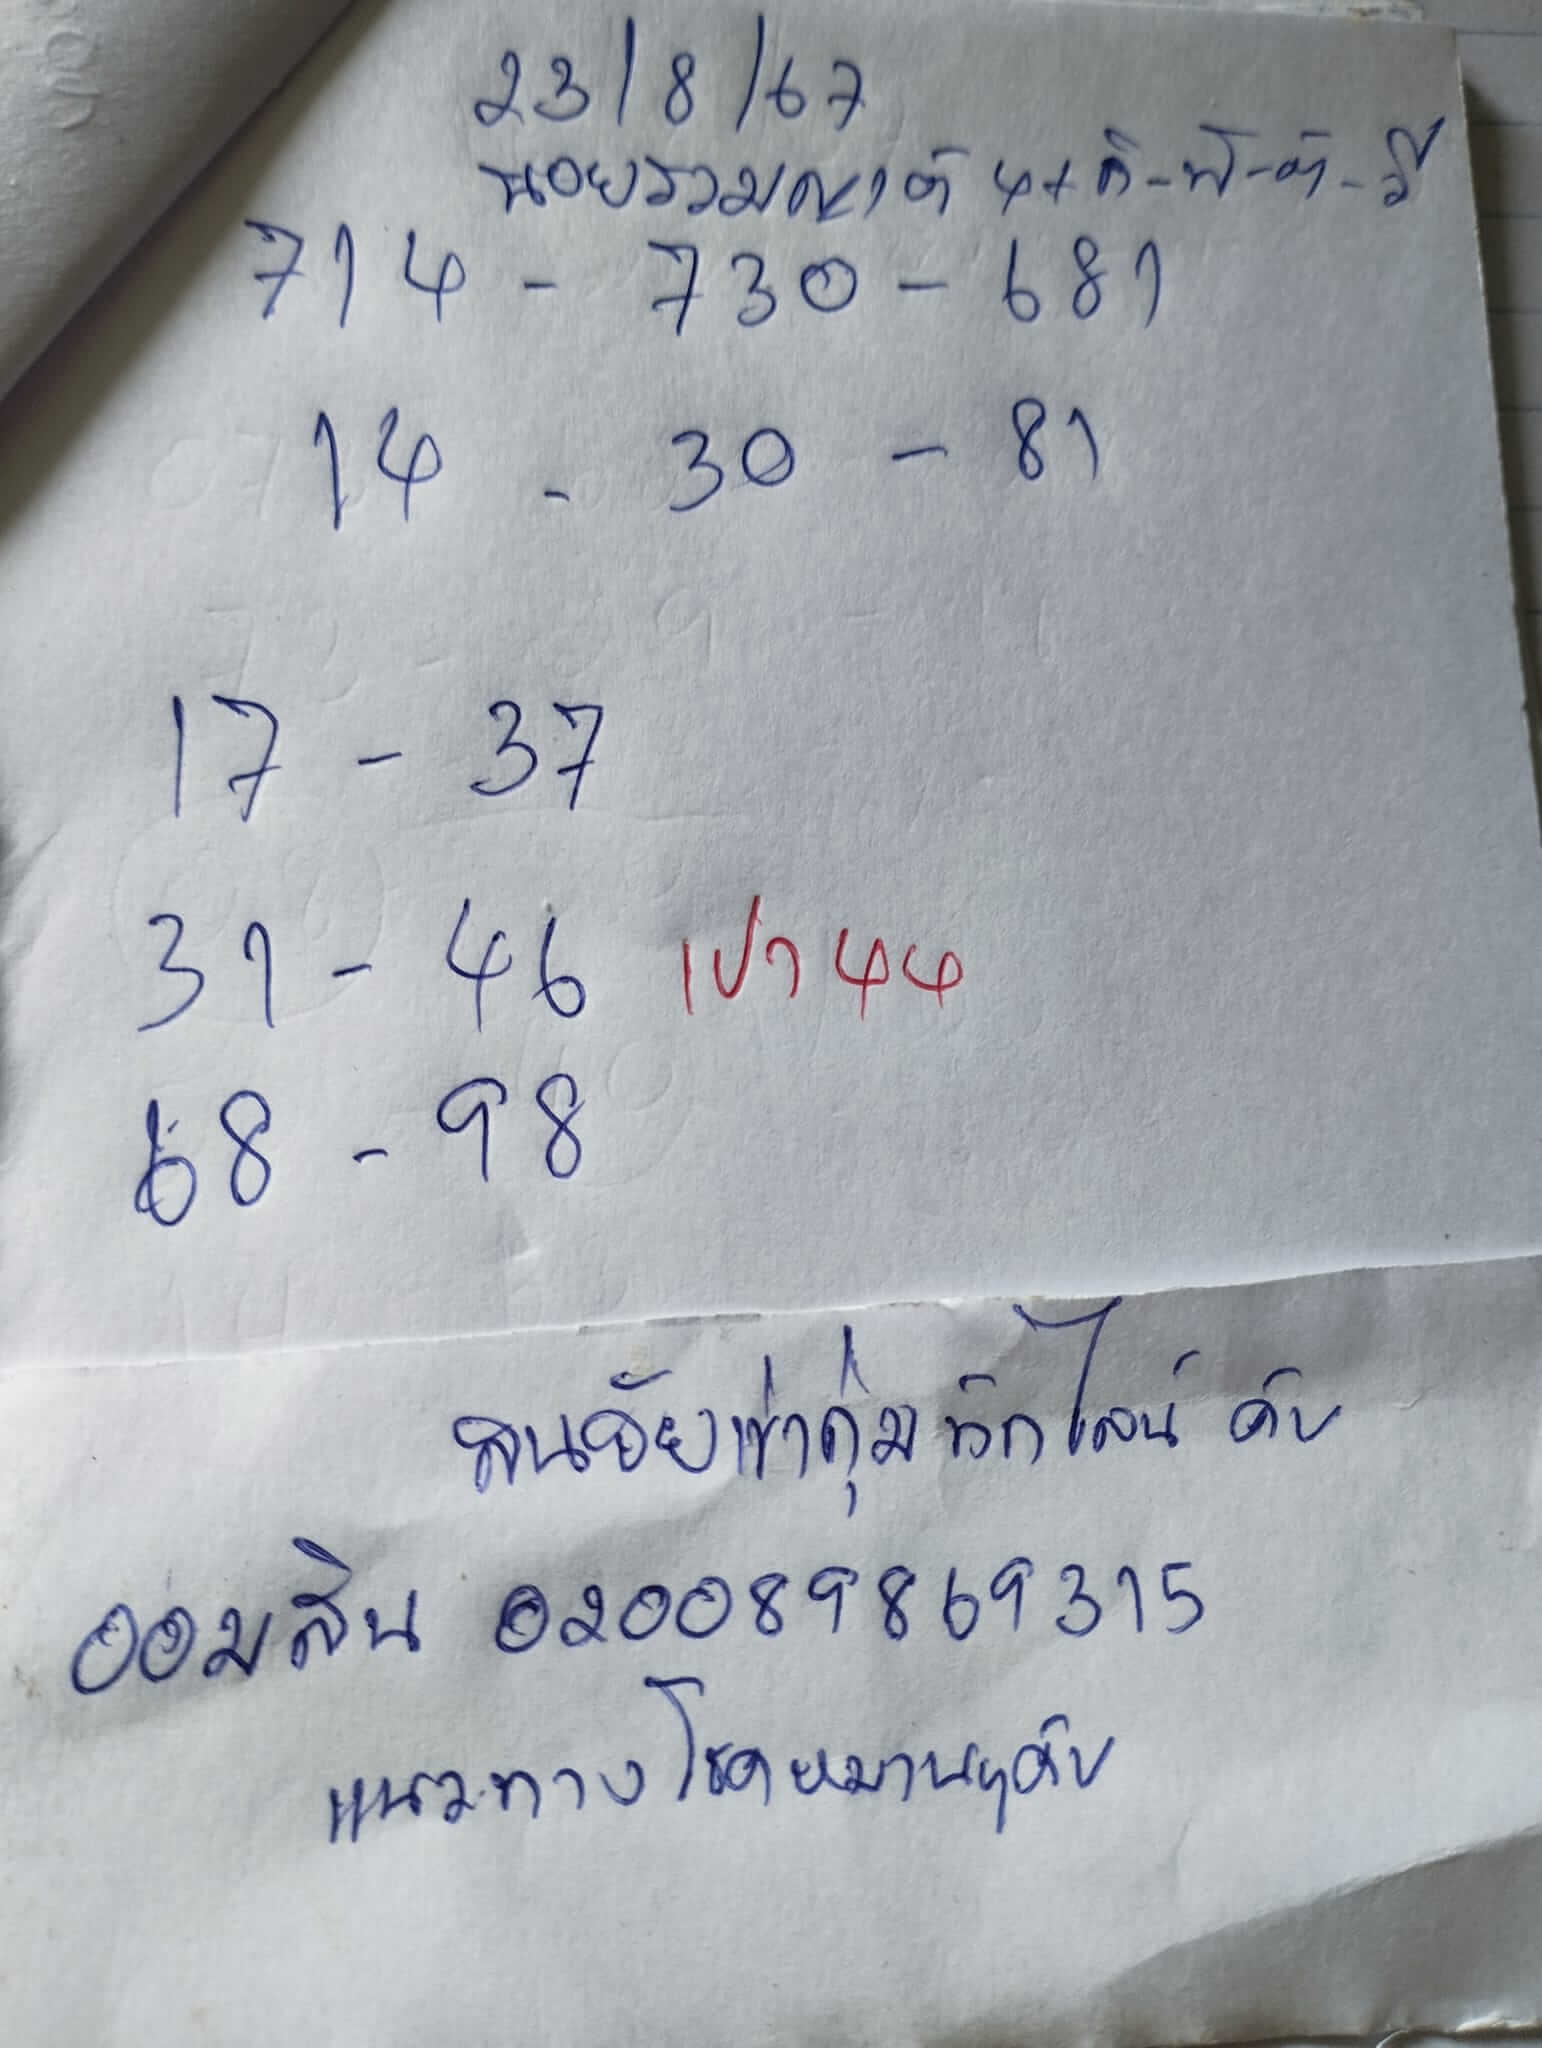 23/8/67
นอยรวมญาติ 4x
714 - 730 - 681
14 - 30 - 81
17 - 37
37 - 46 เปา 44
68 - 98
สนจัยเข่ากุ่ม ทักไลน์ คับ
ออมสิน 020089869315
แนวทางโชคหมานๆคับ